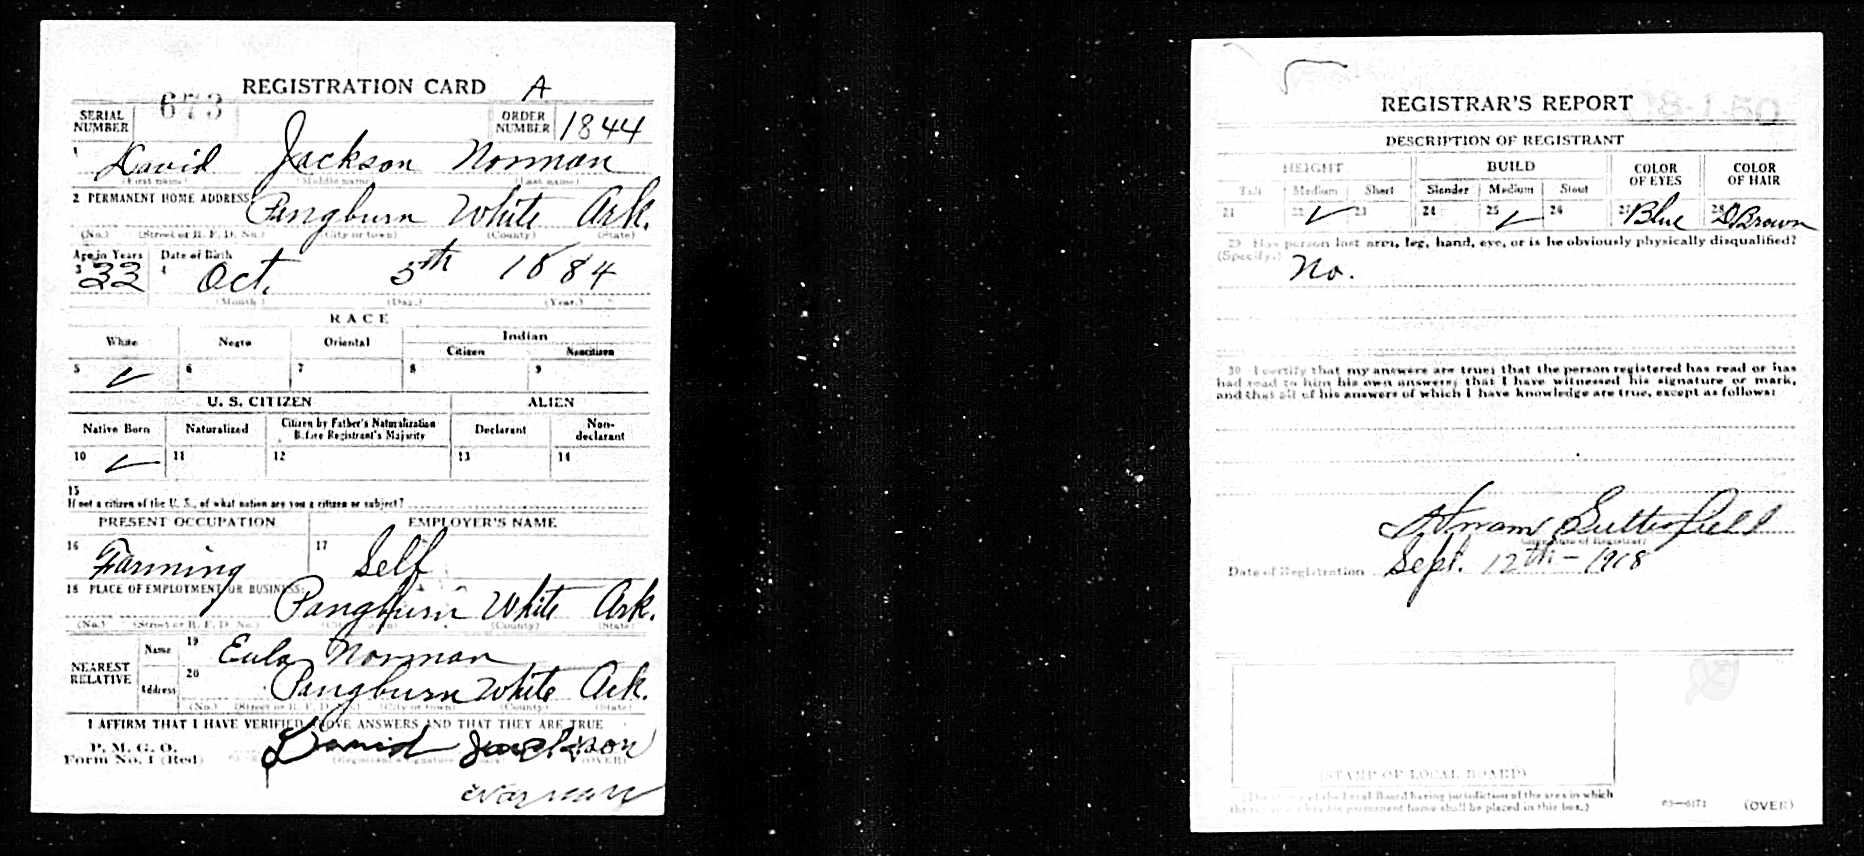 REGISTRATION CARD A
SERIAL NUMBER 673 ORDER NUMBER 1844
1 David Jackson Norman
(First name) (Middle name) (Last name)
2 PERMANENT HOME ADDRESS: Pangburn White Ark.
(No.) (Street or R. F. D. No.) (City or town) (County) (State)
Age in Years Date of Birth
3 33 4 Oct. 5th 1884
(Month.) (Day.) (Year.)
RACE
White Negro Oriental Indian
Citizen Noncitizen
5 ✓ 6 7 8 9
U. S. CITIZEN ALIEN
Native Born Naturalized Citizen by Father's Naturalization Before Registrant's Majority Declarant Non-declarant
10 ✓ 11 12 13 14
15
If not a citizen of the U. S., of what nation are you a citizen or subject?
PRESENT OCCUPATION EMPLOYER'S NAME
16 Farming 17 Self
18 PLACE OF EMPLOYMENT OR BUSINESS: Pangburn White Ark.
(No.) (Street or R. F. D. No.) (City or town) (County) (State)
NEAREST RELATIVE Name 19 Eula Norman
Address 20 Pangburn White Ark.
(No.) (Street or R. F. D. No.) (City or town) (County) (State)
I AFFIRM THAT I HAVE VERIFIED ABOVE ANSWERS AND THAT THEY ARE TRUE
P. M. G. O.
Form No. 1 (Red) David Jackson
(Registrant's signature or mark) (OVER)
Norman
REGISTRAR'S REPORT
DESCRIPTION OF REGISTRANT
HEIGHT BUILD COLOR OF EYES COLOR OF HAIR
Tall Medium Short Slender Medium Stout
21 22 ✓ 23 24 25 ✓ 26 27 Blue 28 D Brown
29 Has person lost arm, leg, hand, eye, or is he obviously physically disqualified?
(Specify.) No.
30 I certify that my answers are true; that the person registered has read or has
had read to him his own answers; that I have witnessed his signature or mark,
and that all of his answers of which I have knowledge are true, except as follows:
Sutterfield
(Signature of Registrar)
Date of Registration Sept. 12th - 1918
(STAMP OF LOCAL BOARD)
(The stamp of the Local Board having jurisdiction of the area in which
the registrant has his permanent home shall be placed in this box.)
03—6171 (OVER)